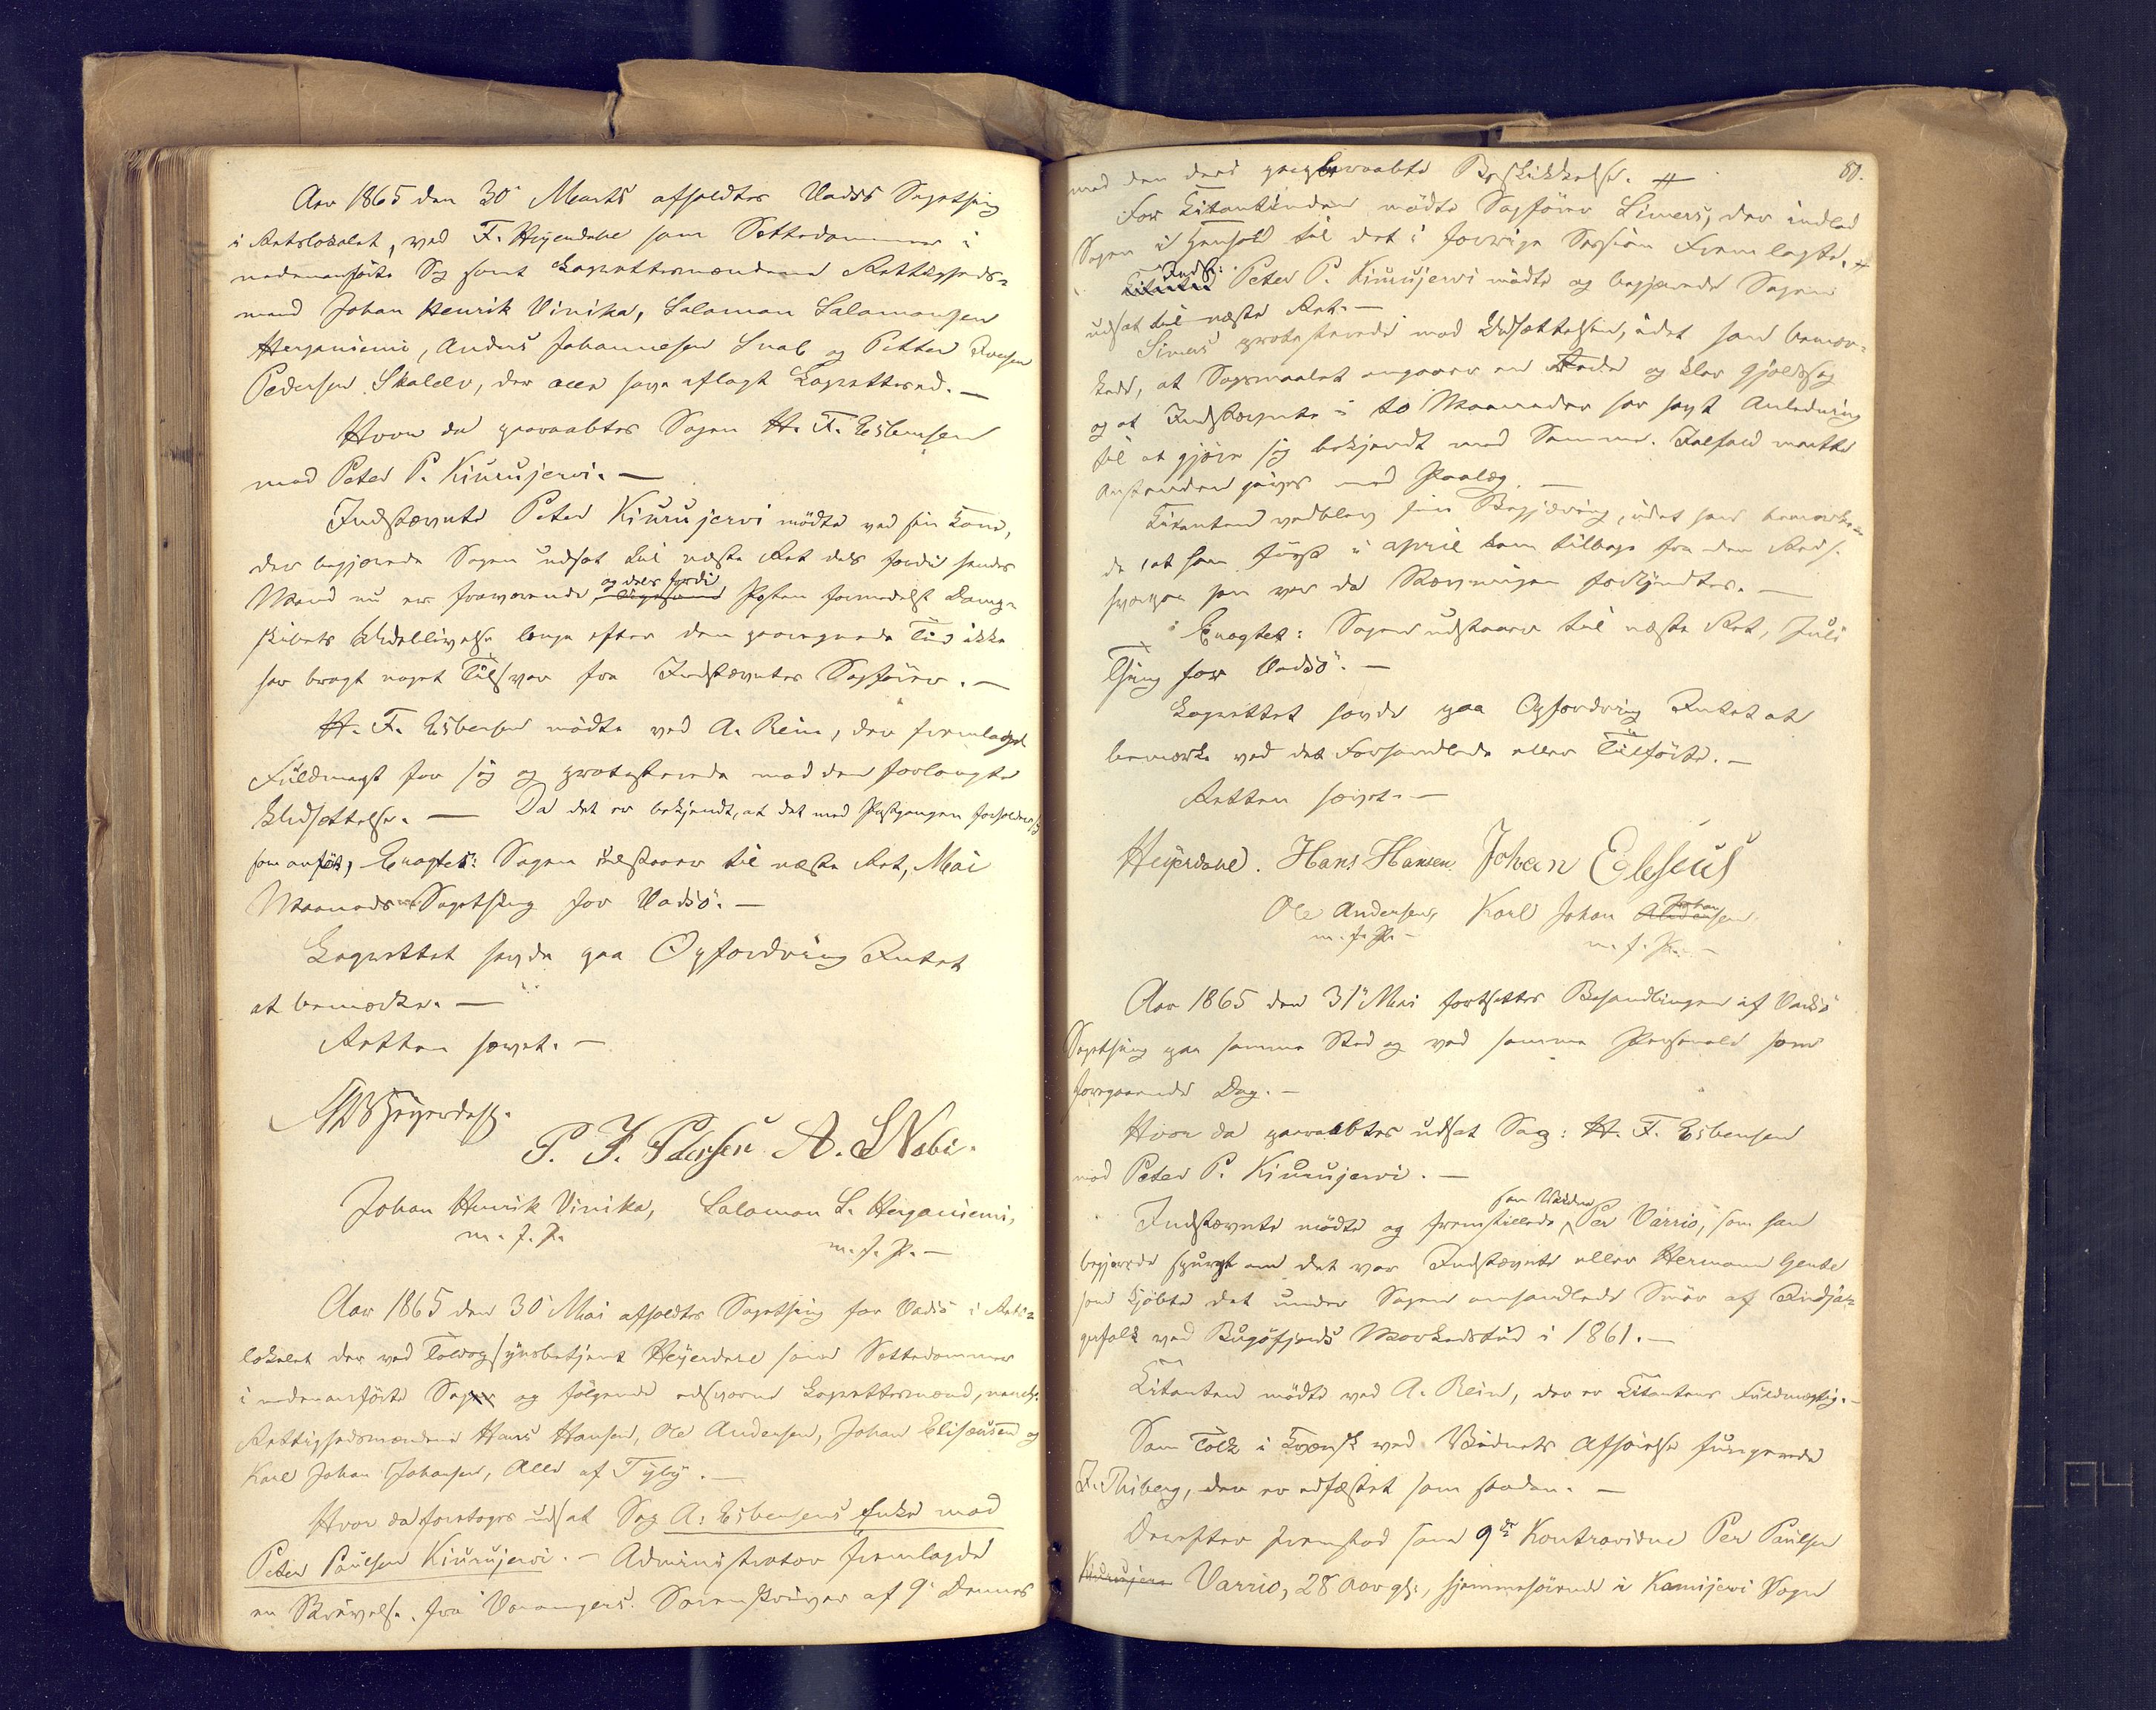 Aar 1865 den 30 Marts afholdtes Vadsö Sagething
i Retslokalet, ved F. Heyerdahl som Settedommer i
nedenanförte Sag samt Lagrettesmændene Rettigheds-
mænd Johan Henrik Vinika, Salamon Salamonsen
Herganiemi, Anders Johannesen Snab og Petter
Pedersen Skalelv, der alle have aflagt Lagrettesed. —
Hvor da paaraabtes Sagen H. F. Esbensen
mod Peter P. Kiurujervi. —
Indstævnte Peter Kiurujervi mödte ved sin Kone,
der begjærede Sagen udsat til næste Ret dels fordi hendes
Mand nu er fraværende og dels fordi Posten formedelst Damp-
skibets Udeblivelse længe efter den paaregnede Tid ikke
har bragt noget Tilsvar fra Indstævntes Sagförer. —
H. F. Esbensen mödte ved A. Rein, der fremlagde
Fuldmagt for sig og protesterede mod den forlangte
Udsættelse. — Da det er bekjendt, at det med Postgangen forholder sig
som anfört, Eragtet: Sagen udstaaer til næste Ret, Mai
Maaneds Sagething for Vadsö. —
Lagrettet havde paa Opfordring Intet
at bemærke. —
Retten hævet. —
Heyerdahl.
P. J. Pedersen A. J Nabi.
Johan Henrik Vinika, Salamon S. Herganiemi,
m. f. P. m. f. P. —
Aar 1865 den 30 Mai afholdtes Sagething for Vadsö i Rets-
lokalet der ved Toldopsynsbetjent Heyerdahl som Settedommer
i nedenanförte Sag og fölgende edsvorne Lagrettesmænd, nemlig:
Rettighedsmændene Hans Hansen, Ole Andersen, Johan Elisæusen og
Karl Johan Johansen, Alle af Tyby. —
Hvor da foretoges udsat Sag A: Esbensens Enke mod
Peter Paulsen Kiurujervi. — Administrator fremlagde
en Skrivelse fra Varangers Sorenskriver af 9 Dennes
80.
med den deri paaberaabte Beskikkelse. #
For Citantinden mödte Sagförer Simers, der indlod
Sagen i Henhold til det i forrige Session Fremlagte. #
Indst: Peter P. Kiurujervi mödte og begjærede Sagen
udsat til næste Ret. —
Simers protesterede mod Udsættelsen, idet han bemær-
kede, at Sagsmaalet angaaer en reder og klar Gjeldssag
og at Indstævnte i to Maaneder har havt Anledning
til at gjöre sig bekjendt med Samme. Ialfald maatte
Anstanden gives med Paalæg. —
Citanten vedblev sin Begjæring, idet han bemærke-
de, at han först i April kom tilbage fra den
hvorpaa han var da Stævningen forkyndtes. —
Eragtet: Sagen udstaaer til næste Ret, Juli
Thing for Vadsö. —
Lagrettet havde paa Opfordring Intet at
bemærke ved det Forhandlede eller Tilförte. —
Retten hævet. —
Heyerdahl. Hans Hansen Johan Eliseus
Ole Andersen, Karl Johan Johansen
m. f. P. — m. f. P. —
Aar 1865 den 31 Mai fortsattes Behandlingen af Vadsö
Sagething paa samme Sted og ved samme Personale som
foregaaende Dag. —
Hvor da paaraabtes udsat Sag: H. F. Esbensen
mod Peter P. Kiurujervi. —
Indstævnte mödte og fremstillede som Vidne Per Värriö, som han
begjærede spurgt om det var Indstævnte eller Hermann Gente
som kjöbte det under Sagen omhandlede Smör af Indjæ-
gerfolk ved Bugöfjords Markedstid i 1861. —
Citanten mödte ved A. Rein, der er Citantens Fuldmægtig. —
Som Tolk i Kvænsk ved Vidnets Afhörelse fungerede
F. Thiberg, der er edfæstet som saadan. —
Derefter fremstod som 9de Kontravidne Per Paulsen
Kiurujervi Varrio, 28 Aar gl:, hjemmehörende i Kemijervi Sogn